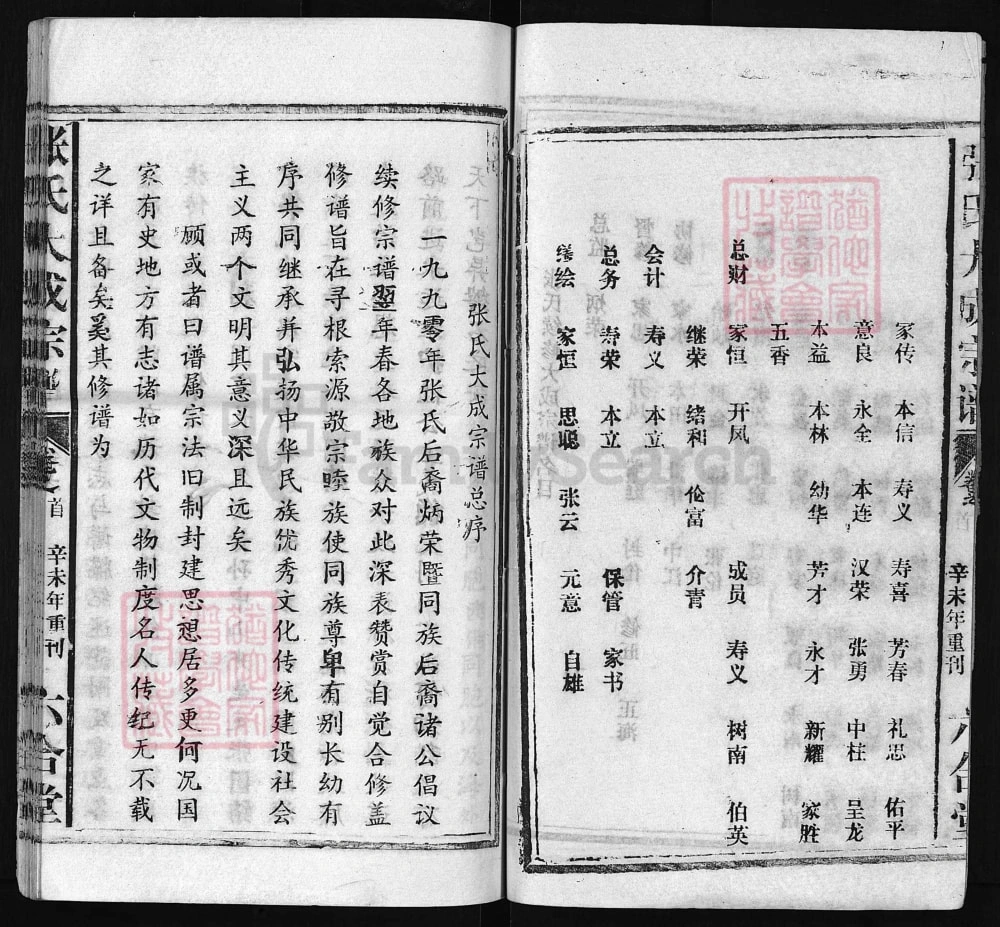 张氏大成宗谱
卷之首
辛未年重刊
六合堂
家传 本信 寿义 寿喜 芳春 礼思 佑平
意良 永全 本连 汉荣 张勇 中柱 呈龙
本益 本林 幼华 芳才 永才 新耀 家胜
五香
总财 家恒 开凤 成员 寿义 树南 伯英
继荣 绪和 伦富 介青
会计 寿义 本立
总务 寿荣 本立 保管 家书
缮绘 家恒 思聪 张云 元意 自雄
张氏大成宗谱总序
一九九零年张氏后裔炳荣暨同族后裔诸公倡议
续修宗谱翌年春各地族众对此深表赞赏自觉合修盖
修谱旨在寻根索源敬宗睦族使同族尊卑有别长幼有
序共同继承并弘扬中华民族优秀文化传统建设社会
主义两个文明其意义深且远矣
顾或者曰谱属宗法旧制封建思想居多更何况国
家有史地方有志诸如历代文物制度名人传纪无不载
之详且备矣奚其修谱为
张氏大成宗谱
卷之首
辛未年重刊
六合堂
FamilySearch